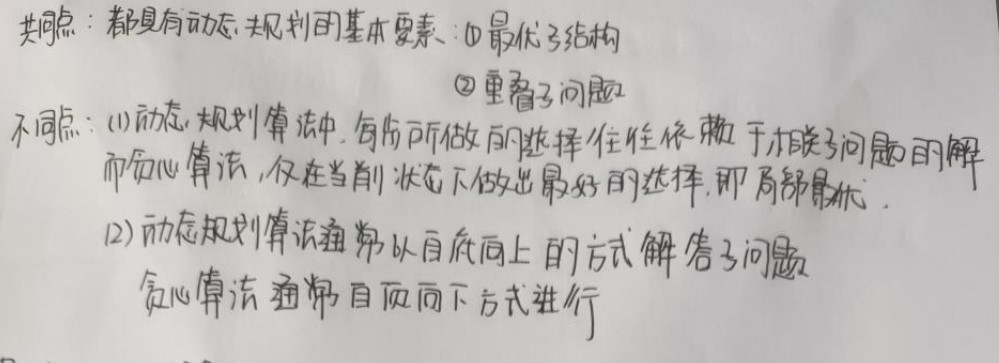 共同点：都具有动态规划的基本要素：①最优子结构
②重叠子问题
不同点：(1)动态规划算法中，每步所做的选择往往依赖于相关子问题的解
而贪心算法，仅在当前状态下做出最好的选择，即局部最优.
(2)动态规划算法通常以自底向上的方式解答子问题
贪心算法通常自顶向下方式进行